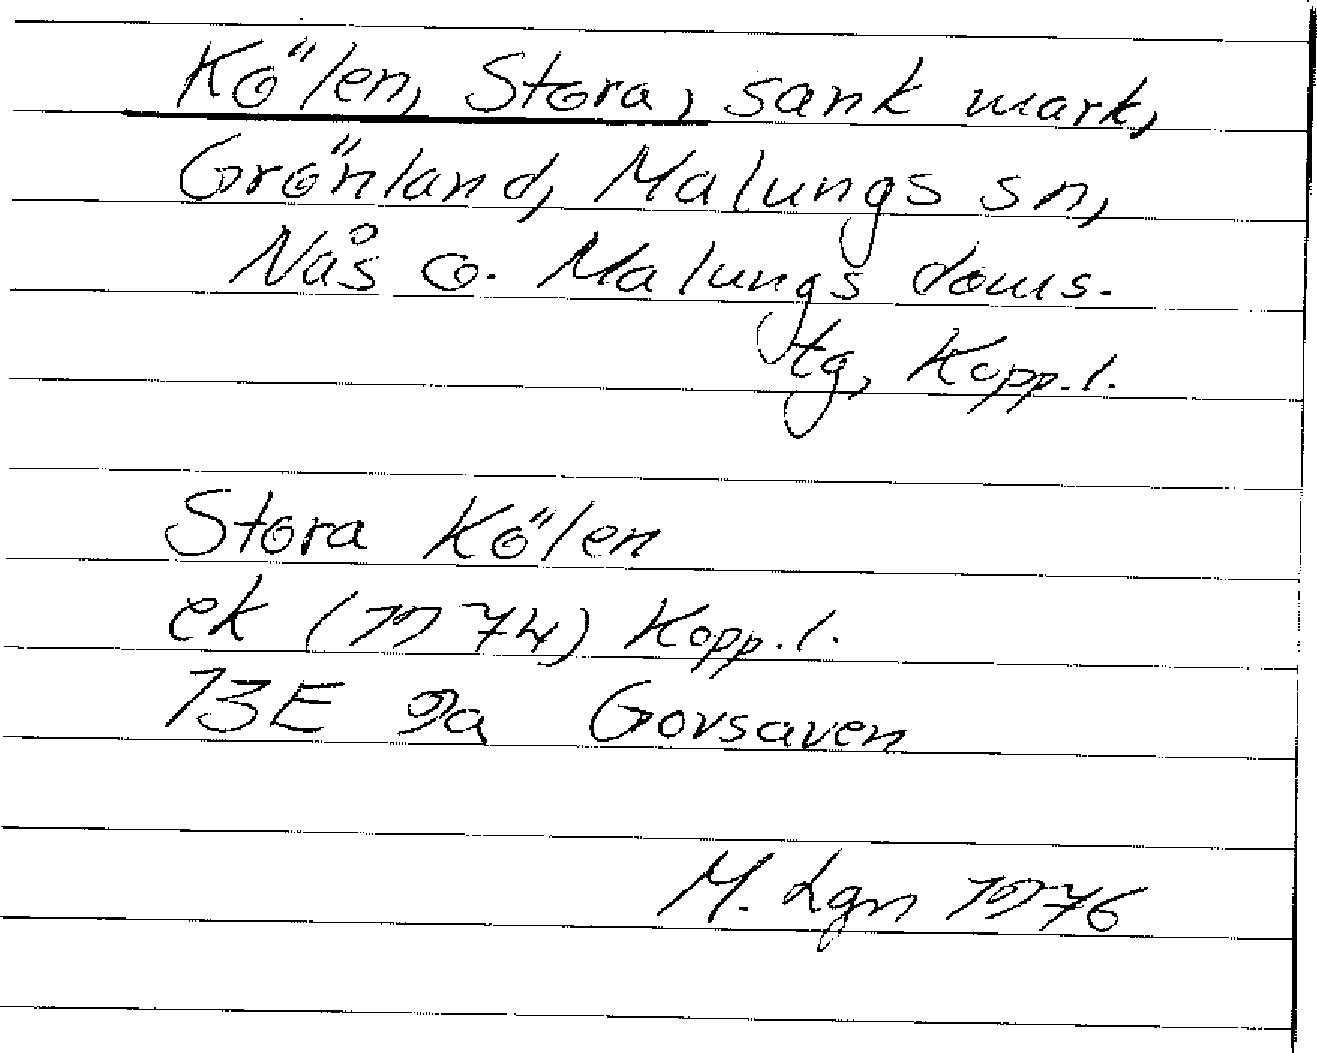 Kölen, Stora, sank mark,
Grönland, Malungs sn,
Nås o. Malungs doms.
tg, Kopp. l.
Stora Kölen
ek (1974) Kopp. l.
13E 9a Govsaven
M. Lgn 1976